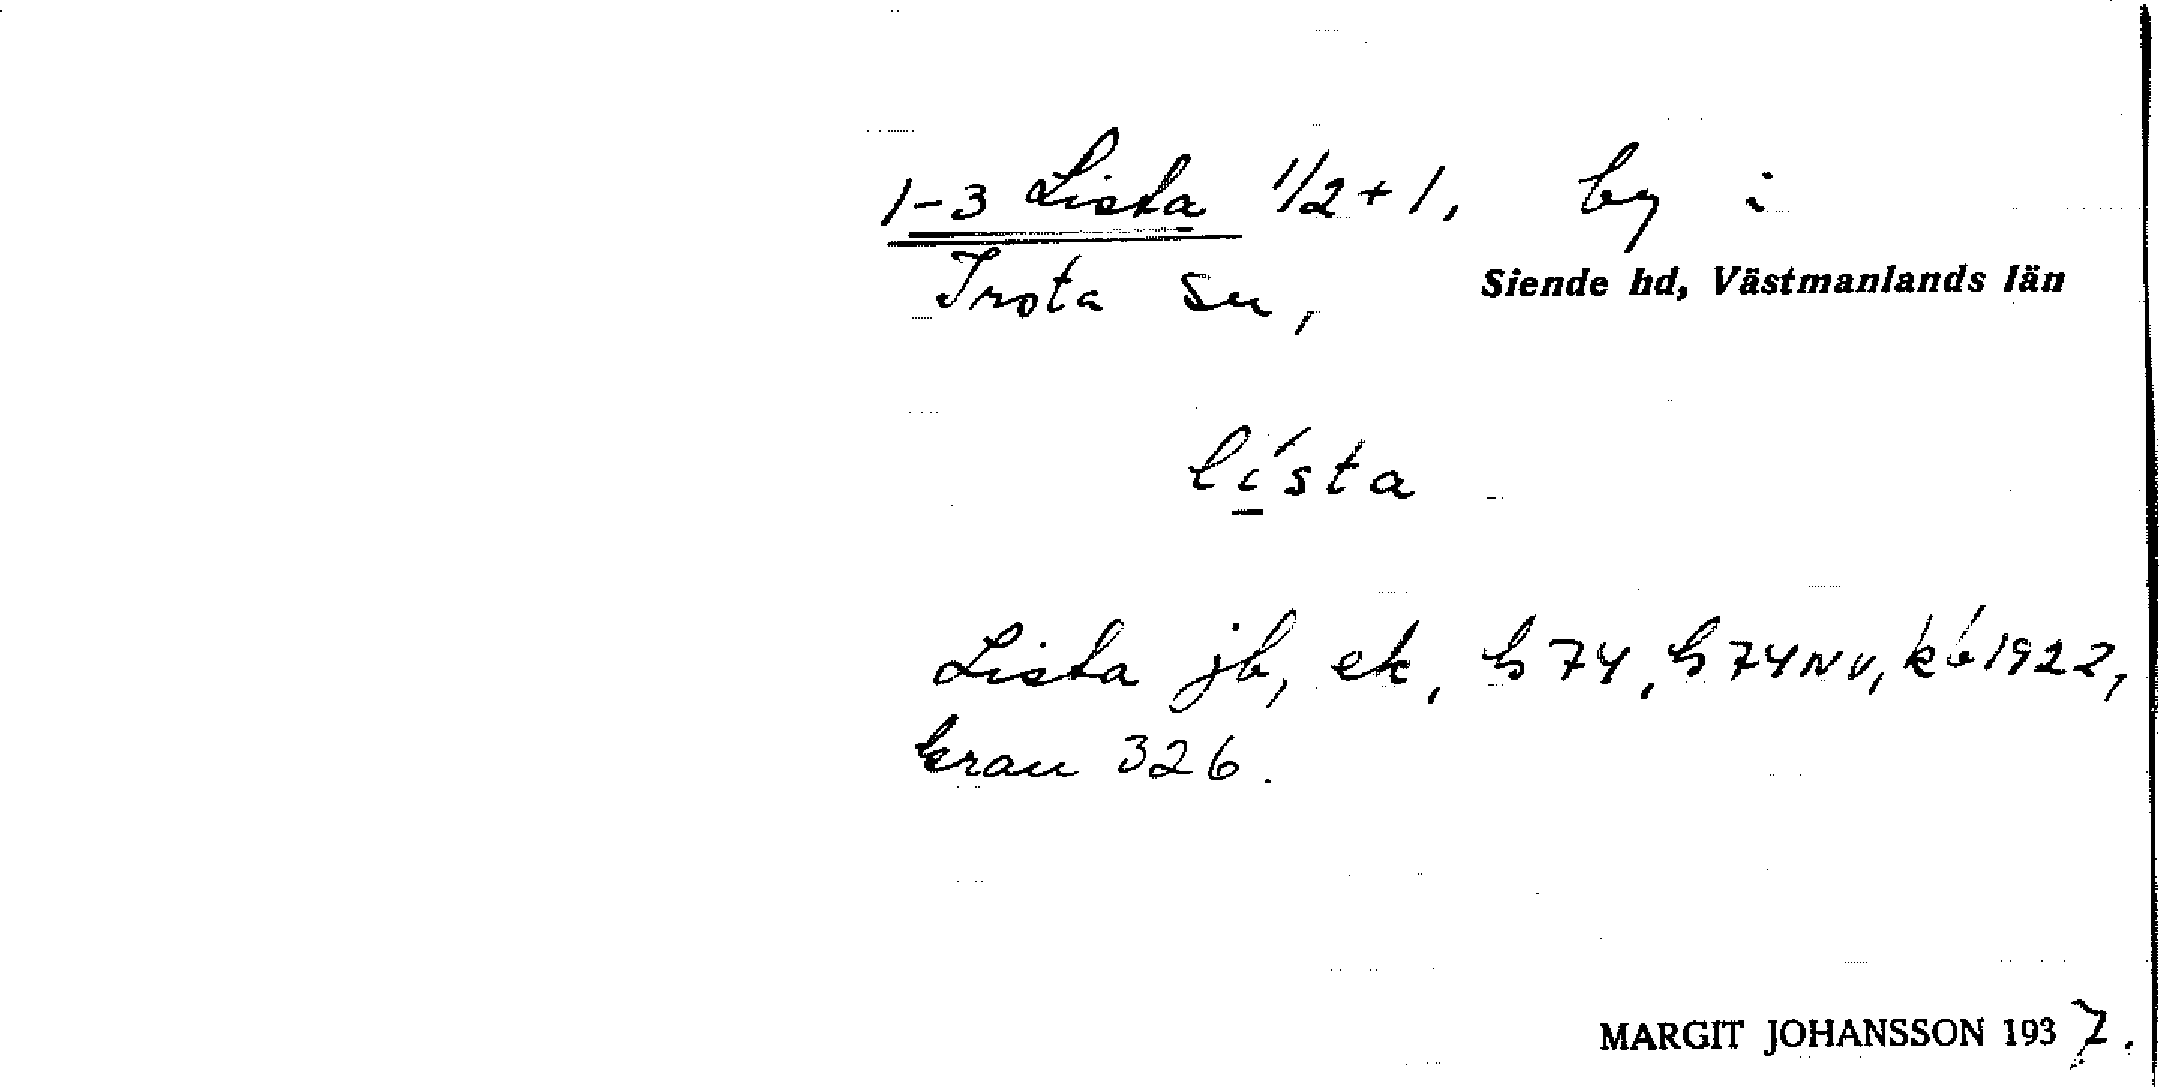 1-3 Lista 1/2 + 1, by i
Irsta sn,
Siende hd, Västmanlands län
lísta
Lista jb, ek, h 74, h 74 NV, kb 1922,
Grau 326.
MARGIT JOHANSSON 1937.